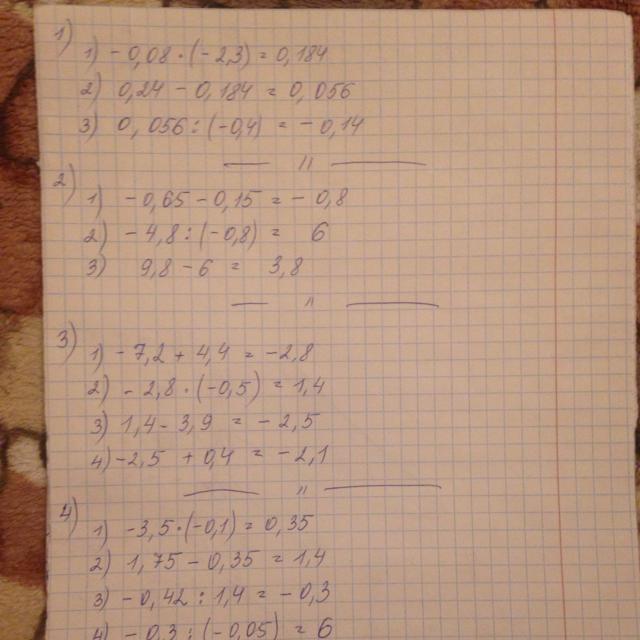 1)
1) -0,08·(-2,3) = 0,184
2) 0,24 - 0,184 = 0,056
3) 0,056 : (-0,4) = -0,14
— 〃 —
2)
1) -0,65 - 0,15 = -0,8
2) -4,8 : (-0,8) = 6
3) 9,8 - 6 = 3,8
— 〃 —
3)
1) -7,2 + 4,4 = -2,8
2) -2,8·(-0,5) = 1,4
3) 1,4 - 3,9 = -2,5
4) -2,5 + 0,4 = -2,1
— 〃 —
4)
1) -3,5·(-0,1) = 0,35
2) 1,75 - 0,35 = 1,4
3) -0,42 : 1,4 = -0,3
4) -0,3 : (-0,05) = 6